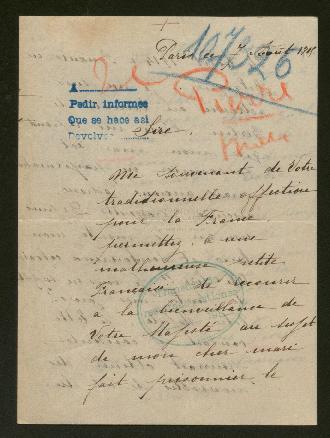 Paris le 7 Août 191
107326
A
Pedir, informes
Que se hace así
Devolver
Pierre
Sire,
Me souvenant de Votre
traditionnelle affection
pour la France
permettez à une
malheureuse petite
Française de recourir
à la bienveillance de
Votre Majesté au sujet
de mon cher mari
fait prisonnier le